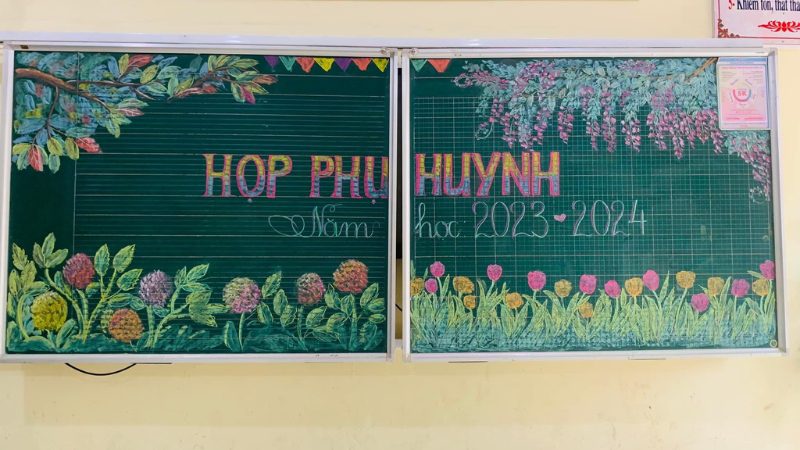 5- Khiêm tốn, thật thà
5K
HỌP PHỤ HUYNH
Năm học: 2023 - 2024